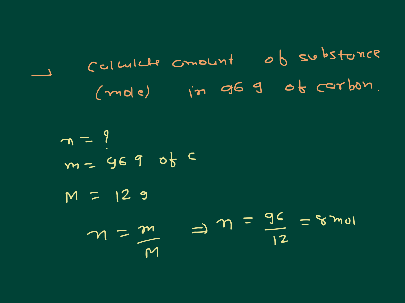 → calculate amount of substance
(mole) in 96 g of carbon.
n = ?
m = 96 g of C
M = 12 g
n = m/M ⇒ n = 96/12 = 8 mol